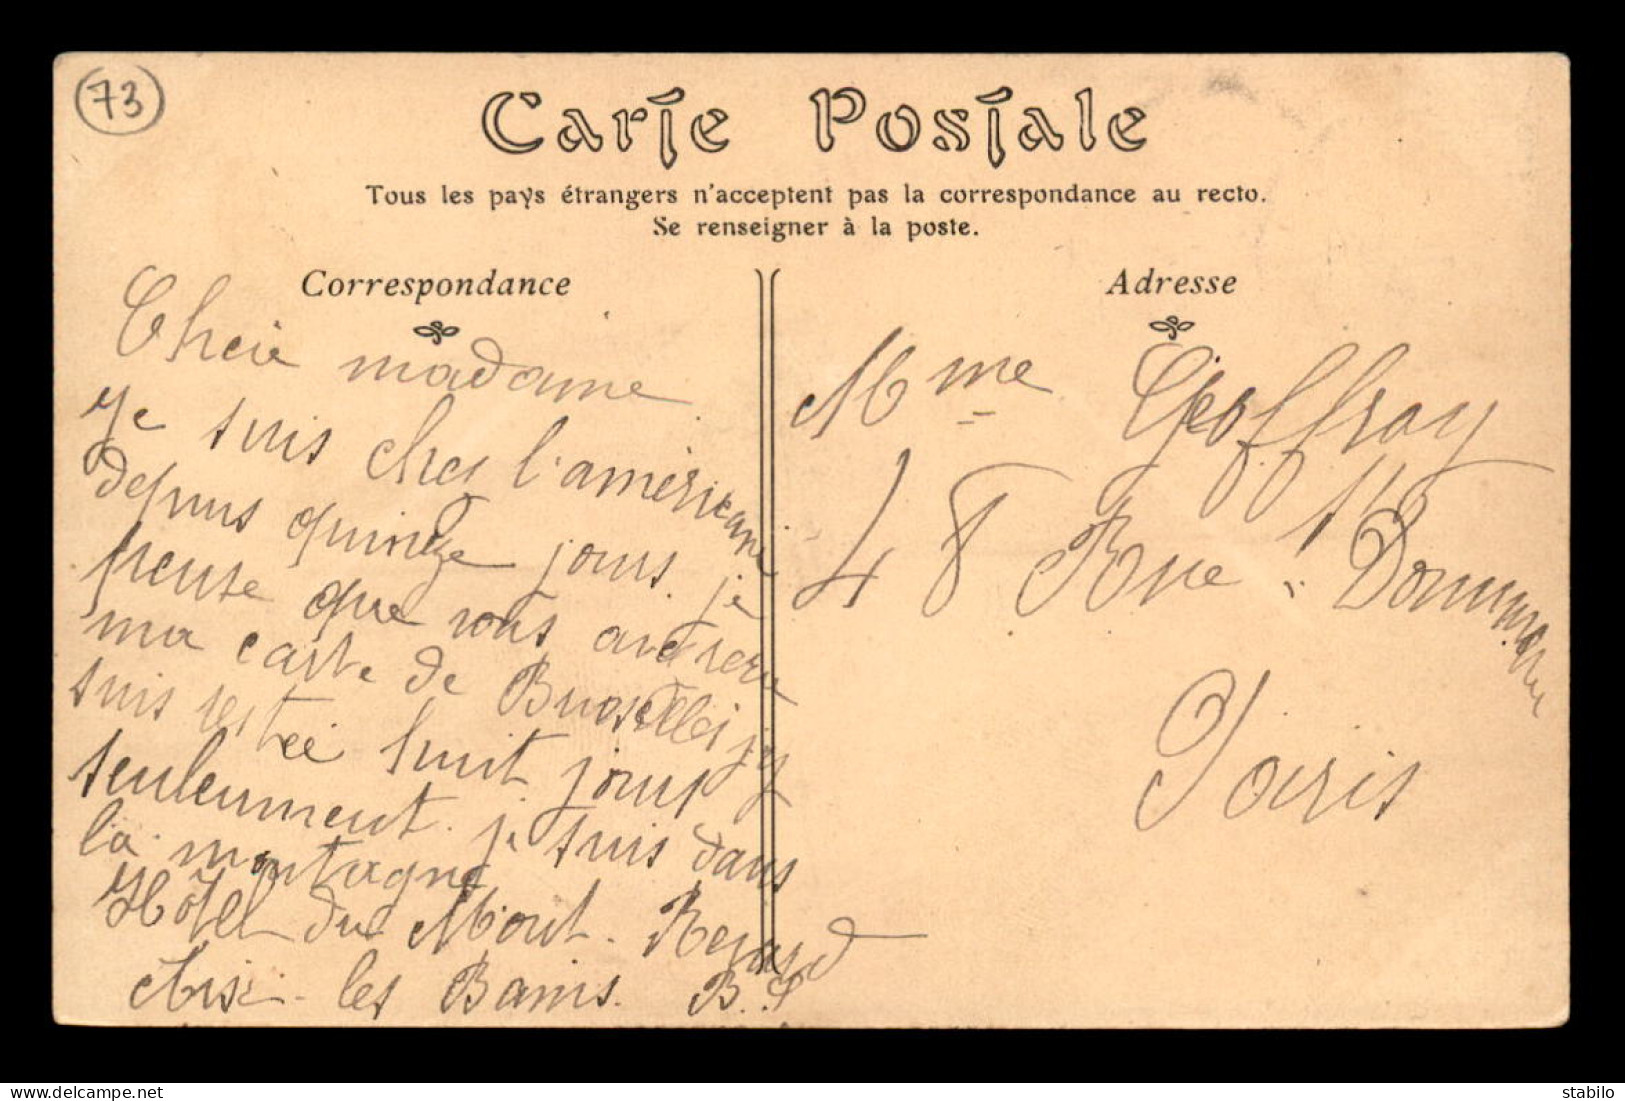 73
Carte Postale
Tous les pays étrangers n'acceptent pas la correspondance au recto.
Se renseigner à la poste.
Correspondance
Cheie madame
Je suis ches l'américane
depuis quinze jours. je
pense que vous avez
ma carte de Bruxelles jy
suis restée huit jours
seulement. je suis dans
la montagne
Hôtel du Mont. Revard
Aix-les Bains. B.
Adresse
Mme Geoffray
48 Rue St Dominique
Paris
stabilo